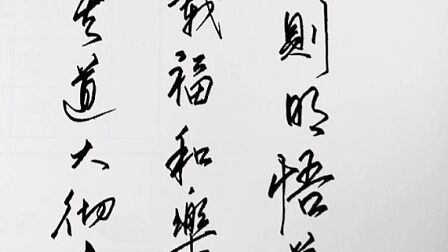 則明悟
載福和樂
道大徹